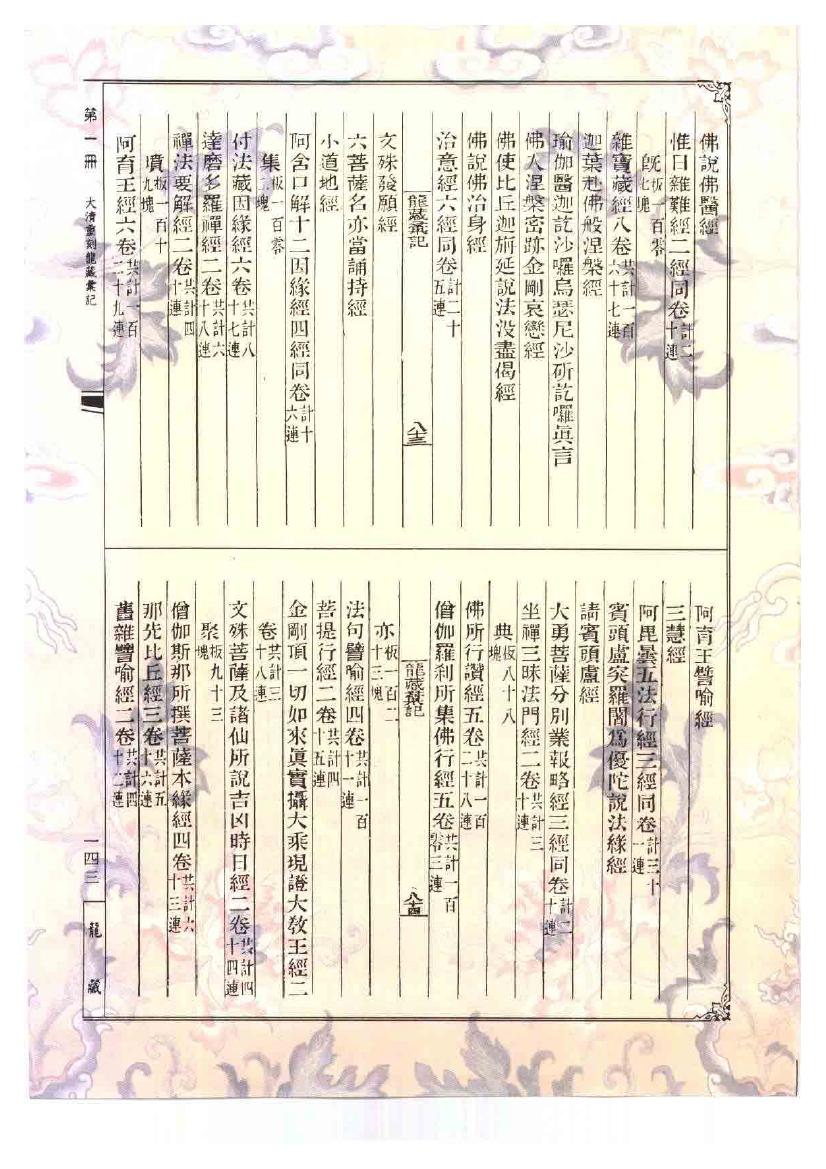 佛說佛醫經
惟日雜難經二經同卷計二十連
旣板一百零七塊
雜寶藏經八卷共計一百六十七連
迦葉赴佛般涅槃經
瑜伽醫迦訖沙囉烏瑟尼沙斫訖囉眞言
佛入涅槃密跡金剛哀戀經
佛使比丘迦旃延說法没盡偈經
佛說佛治身經
治意經六經同卷計二十五連
龍藏彙記 八十三
文殊發願經
六菩薩名亦當誦持經
小道地經
阿含口解十二因緣經四經同卷計十六連
集板一百零二塊
付法藏因緣經六卷共計八十七連
達磨多羅禪經二卷共計六十八連
禪法要解經二卷共計四十連
墳板一百十九塊
阿育王經六卷共計一百二十九連
阿育王譬喻經
三慧經
阿毘曇五法行經三經同卷計三十一連
賓頭盧突羅闍爲優陀說法緣經
請賓頭盧經
大勇菩薩分別業報略經三經同卷計二十連
坐禪三昧法門經二卷共計三十連
典板八十八塊
佛所行讚經五卷共計一百二十八連
僧伽羅剎所集佛行經五卷共計一百零三連
龍藏彙記 八十四
亦板一百二十三塊
法句譬喻經四卷共計一百十一連
菩提行經二卷共計四十五連
金剛頂一切如來眞實攝大乘現證大敎王經二
卷共計三十八連
文殊菩薩及諸仙所說吉凶時日經二卷共計四十四連
聚板九十三塊
僧伽斯那所撰菩薩本緣經四卷共計六十三連
那先比丘經三卷共計五十六連
舊雜譬喻經二卷共計四十二連
第一冊 大清重刻龍藏彙記
一四三
龍藏